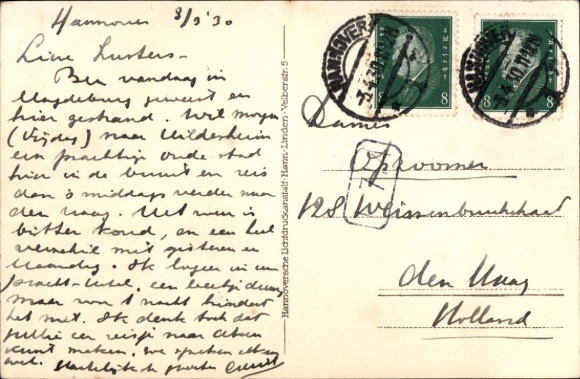 Hannover 3/3'30
Lieve Zusters -
Ben vandaag in
Magdeburg geweest en
hier gestrand. Wil morgen
(Vrijdag) naar Hildesheim
een prachtige oude stad
hier in de buurt en reis
dan 's middags verder naar
den Haag. Het weer is
bitter koud, en een heel
verschil met gisteren en
Maandag. Ik logeer in een
pracht-Hotel, een beetje duur
maar voor 1 nacht hindert
het niet. Ik denk toch dat
jullie een reisje naar
kunt maken, we spreken elkaar
wel. Hartelijk
Hannoversche Lichtdruckanstalt, Hann.-Linden, Velberstr. 5
HANNOVER
8 8
HANNOVER
8 8
Dames
128 Weissenbruchstraat
den Haag
Holland